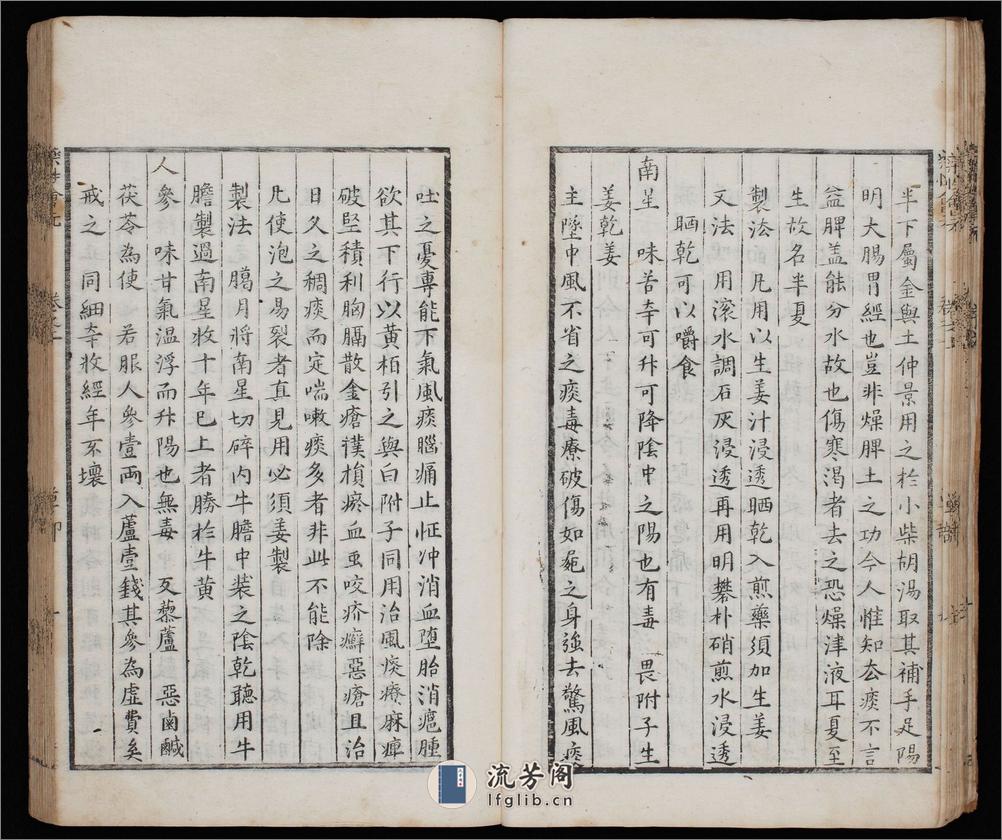 半下屬金與土仲景用之於小柴胡湯取其補手足陽
明大腸胃經也豈非燥脾土之功今人惟知去痰不言
益脾盖能分水故也傷寒渴者去之恐燥津液耳夏至
生故名半夏
製法凡用以生姜汁浸透晒乾入煎藥須加生姜
又法用滾水調石灰浸透再用明礬朴硝煎水浸透
晒乾可以嚼食
南星 味苦辛可升可降陰中之陽也有毒 畏附子生
姜乾姜
主墜中風不省之痰毒療破傷如屍之身強去驚風痰
吐之憂專能下氣風痰腦痛止怔冲消血堕胎消癰腫
欲其下行以黄栢引之與白附子同用治風痰療麻痺
破堅積利胸膈散金瘡撲損瘀血虫咬疥癬惡瘡且治
日久之稠痰而定喘嗽痰多者非此不能除
凡使泡之易裂者真見用必須姜製
製法 臈月將南星切碎内牛膽中装之陰乾聽用牛
膽製過南星收十年已上者勝於牛黄
人參 味甘氣温浮而升陽也無毒 反藜蘆 惡鹵鹹
茯苓為使 若服人參壹兩入蘆壹錢其參為虛費矣
戒之 同細辛收經年不壞
流芳阁
lfglib.cn